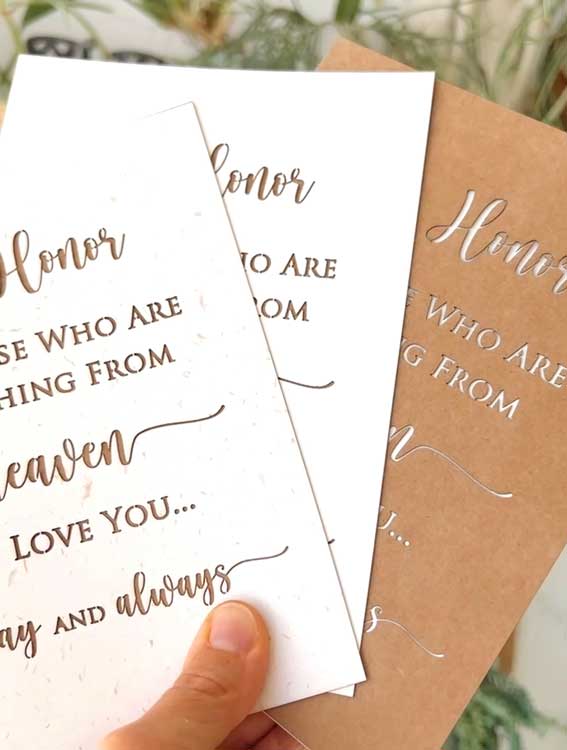 Honor
SE WHO ARE
HING FROM
eaven
LOVE YOU...
ay AND always
Honor
O ARE
ROM
Honor
E WHO ARE
NG FROM
n
U...
s